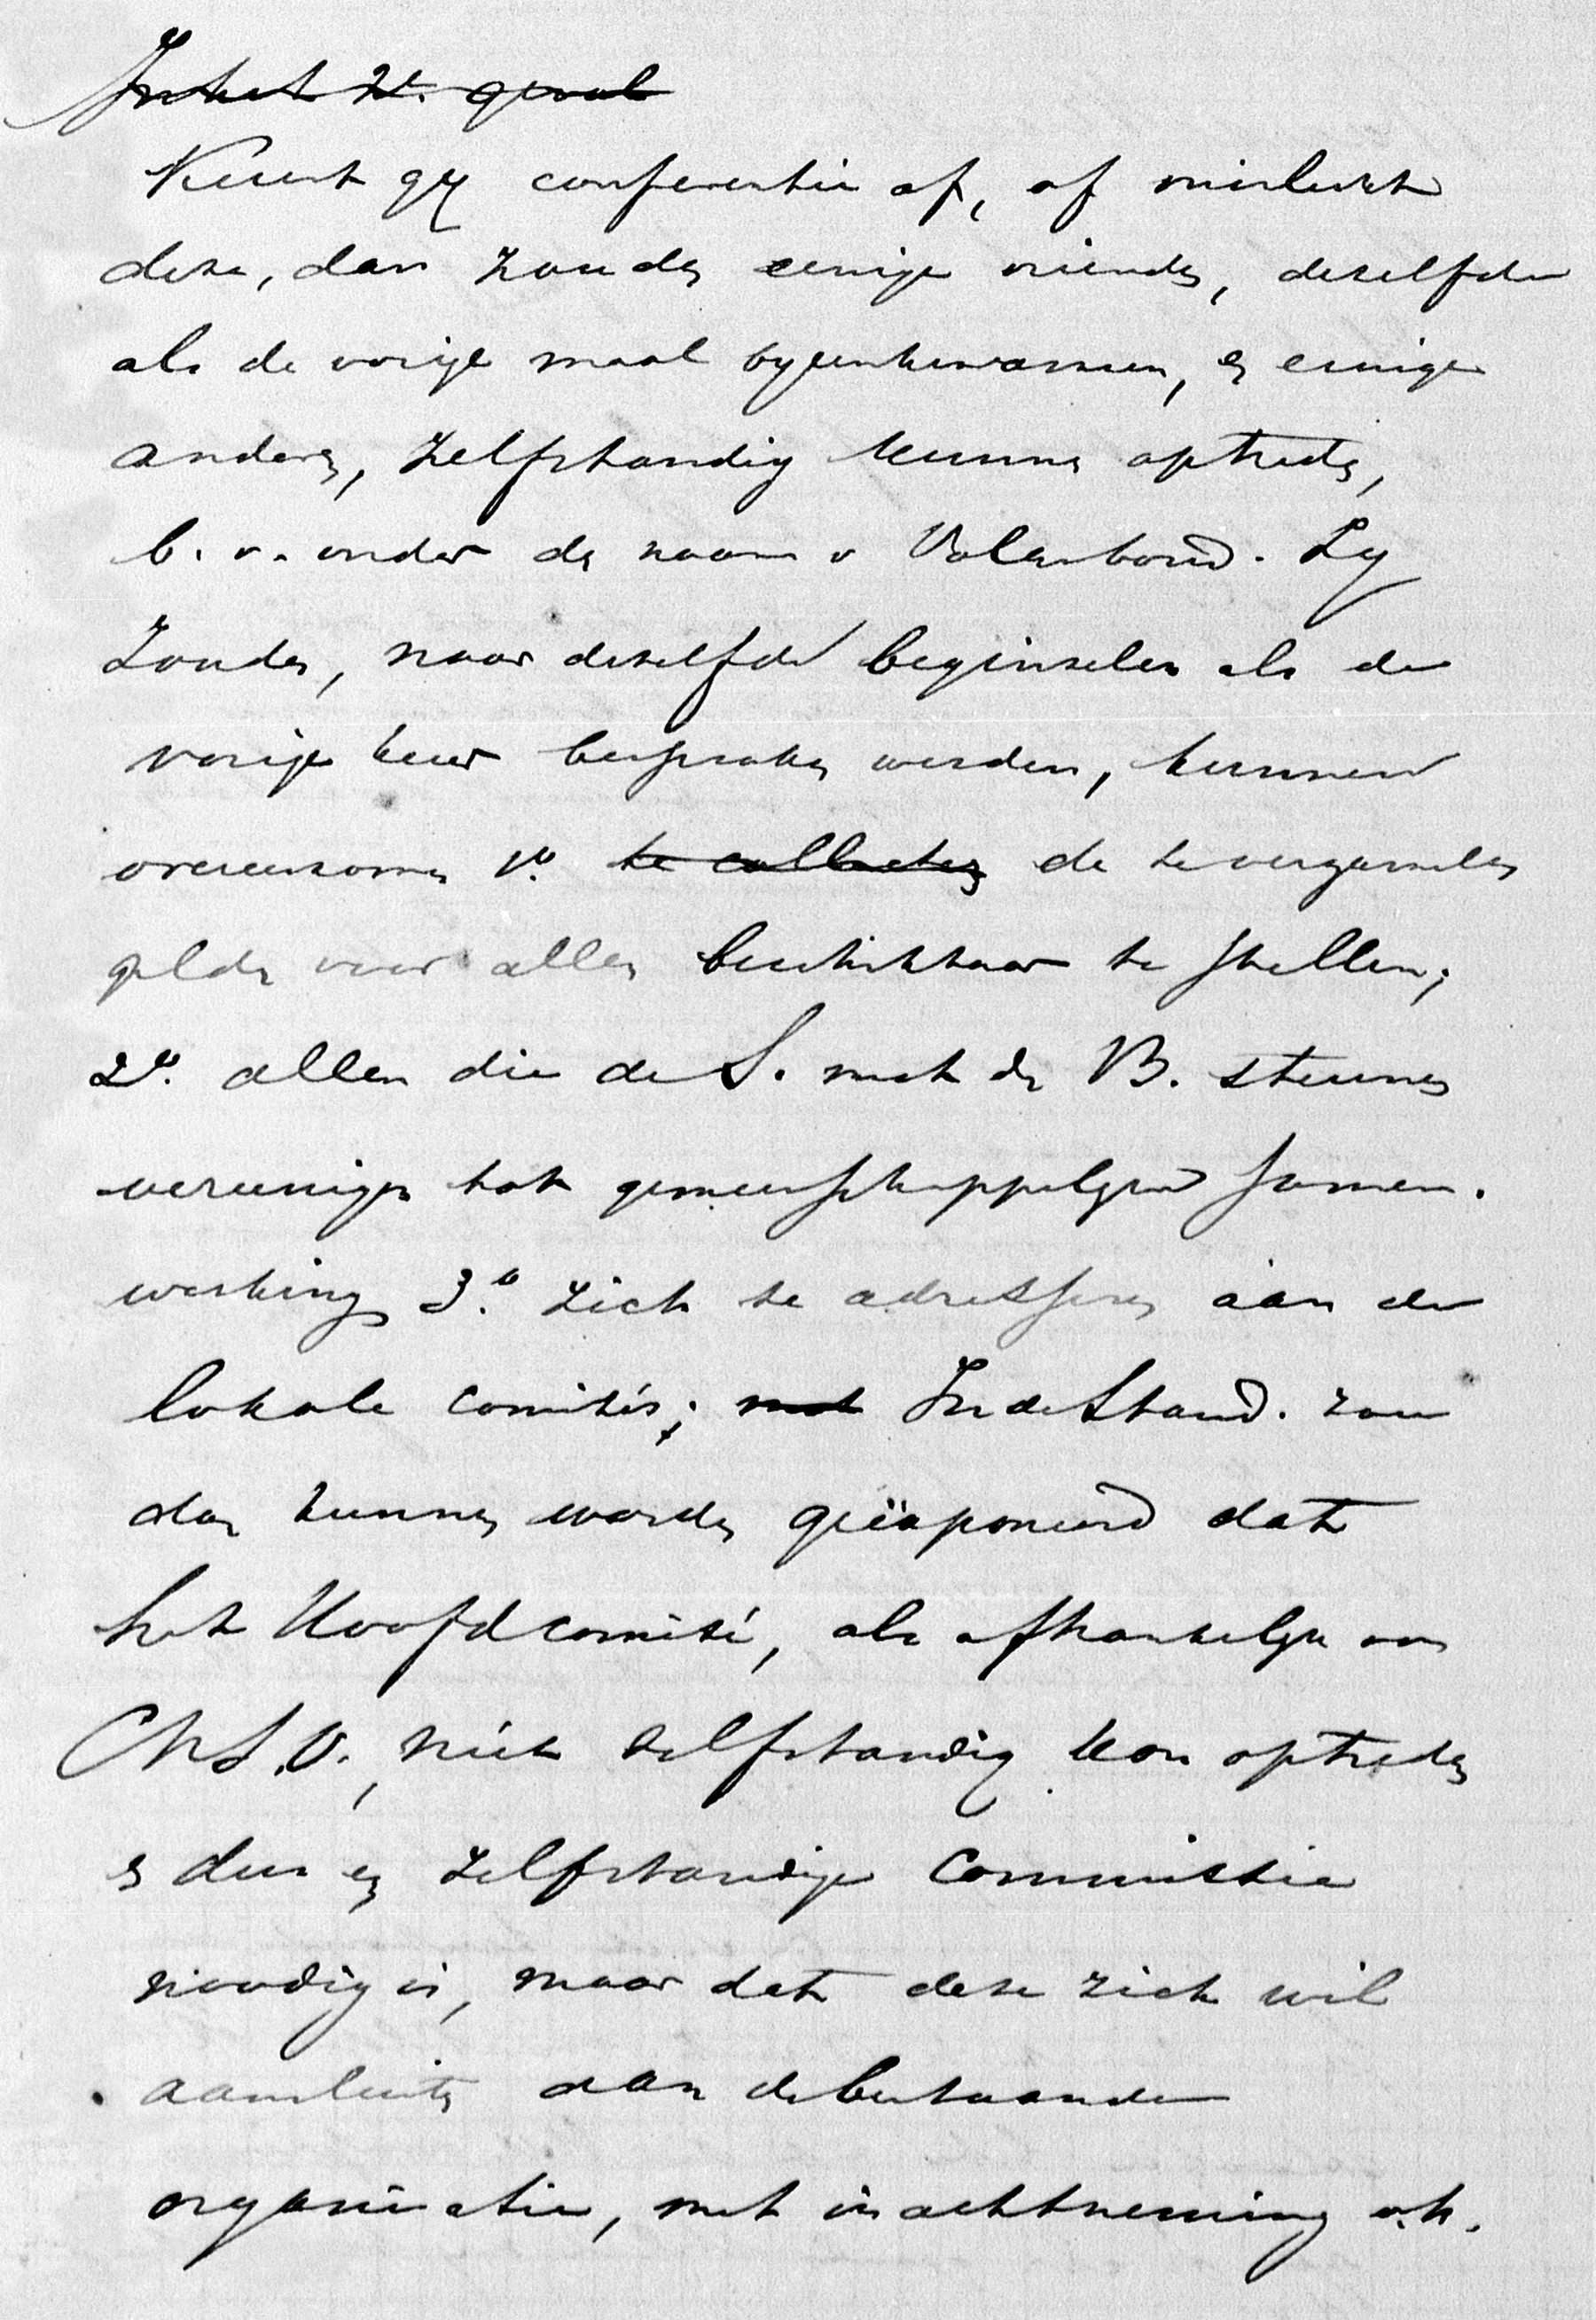 In het 2e. geval
Keurt gy conferentie af, of mislukt
deze, dan zouden eenige vrienden, dezelfde
als de vorige maal byeenkwamen, en eenige
anderen, zelfstandig kunnen optreden,
b. v. onder den naam v Valenbond. Zy
zouden, naar dezelfde beginselen als de
vorige keer besproken werden, kunnen
overeenkomen 1o. te collecteren de te verzamelen
gelden voor allen beschikbaar te stellen;
2o. allen die de S. met de B. steunen
vereenigen tot gemeenschappelyke samen.
werking 3.o zich te adresseren aan de
lokale comités; met In de Stand. zou
dan kunnen worden geëxponeerd dat
het Hoofdcomité, als afhankelyk van
CNS.V., niet zelfstandig kan optreden
en dus een zelfstandige Commissie
noodig is, maar dat deze zich wil
aansluiten aan de bestaande
organisatie, met inachtneming v.h.